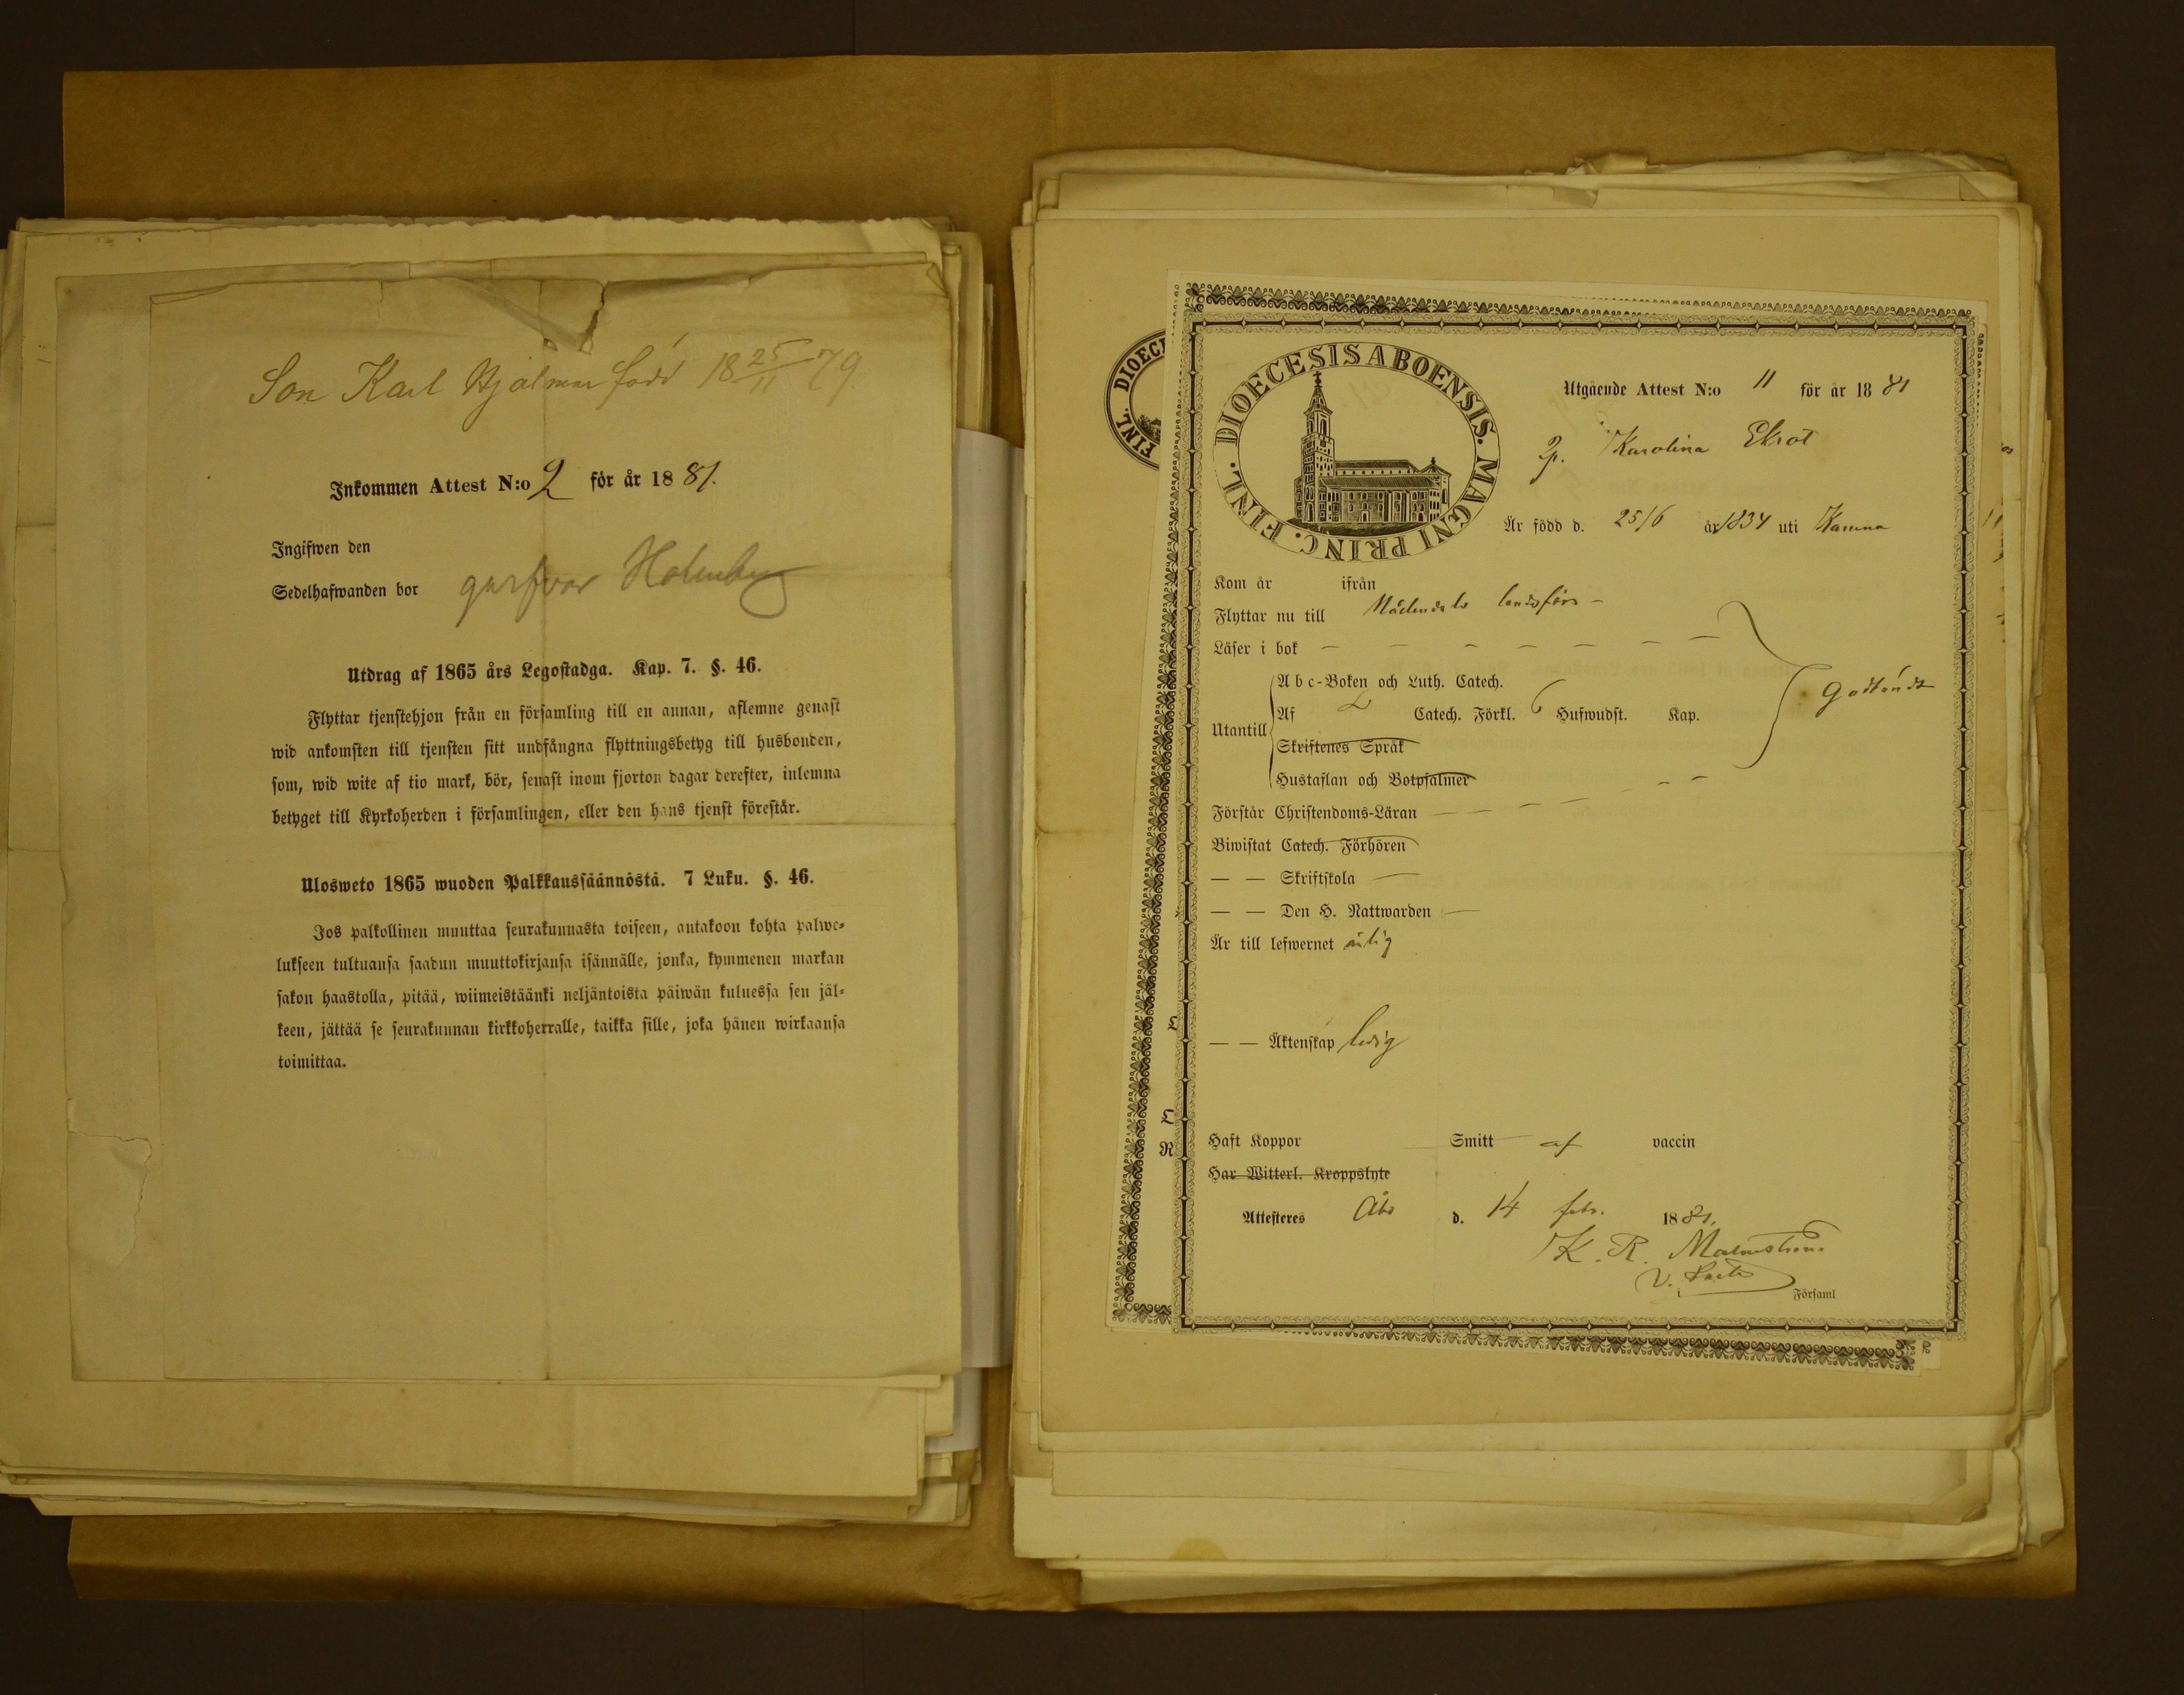 Son Karl Hjalmar född 18 25/11 79.
Inkommen Attest N:o 2 för år 1881.
Ingifwen den
Sedelhafwanden bor garfvar Holmberg
Utdrag af 1865 års Legostadga. Kap. 7. §. 46.
Flyttar tjenstehjon från en församling till en annan, aflemne genast
wid ankomsten till tjensten sitt undfångna flyttningsbetyg till husbonden,
som, wid wite af tio mark, bör, senast inom fjorton dagar derefter, inlemna
betyget till Kyrkoherden i församlingen, eller den hans tjenst förestår.
Ulosweto 1865 wuoden Palkkaussäännöstä. 7 Luku. §. 46.
Jos palkollinen muuttaa seurakunnasta toiseen, antakoon kohta palwe-
lukseen tultuansa saadun muuttokirjansa isännälle, jonka, kymmenen markan
sakon haastolla, pitää, wiimeistäänki neljäntoista päiwän kuluessa sen jäl-
keen, jättää se seurakunnan kirkkoherralle, taikka sille, joka hänen wirkaansa
toimittaa.
FINL. DIOECE
DIOECESIS ABOENSIS. MAGNI PRINC. FINL.
Utgående Attest N:o 11 för år 1881
p. Karolina Ekrot
Är född d. 25/6 år 1834 uti
Kom år ifrån
Flyttar nu till Nådendals landsförs
Läser i bok
Utantill
Abc-Boken och Luth. Catech.
Af L Catech. Förkl. 6 Hufwudst. Kap.
Skriftenes Språk
Hustaflan och Botpsalmer
Godkändt
Förstår Christendoms-Läran
Biwistat Catech. Förhören
— — Skriftskola
— — Den H. Nattwarden
Är till lefwernet ärlig
— — Äktenskap ledig
Haft Koppor Smitt af vaccin
Har Witterl. Kroppslyte
Attesteres Åbo d. 14 febr. 1881.
K. R. Malmström
V. Past
i Församl